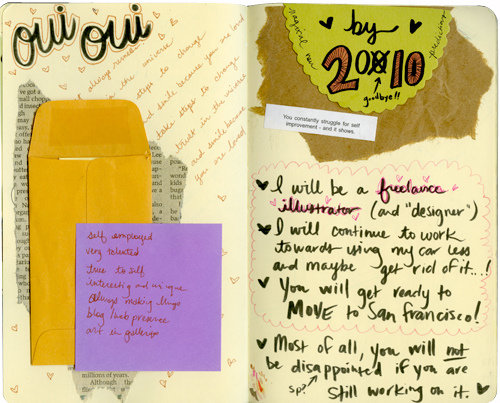 oui oui
always remember
the universe
take steps to change
and smile because you are loved
take steps to change
trust in the universe
and smile because
you are loved!
self employed
very talented
true to self
interesting and unique
always making things
blog/web presence
art in galleries
millions of years.
Although th
by
2010
goodbye!!
You constantly struggle for self
improvement - and it shows.
I will be a freelance
illustrator (and "designer")
I will continue to work
towards using my car less
and maybe get rid of it..!
You will get ready to
MOVE to San francisco!
Most of all, you will not
be disappointed if you are
sp? still working on it.